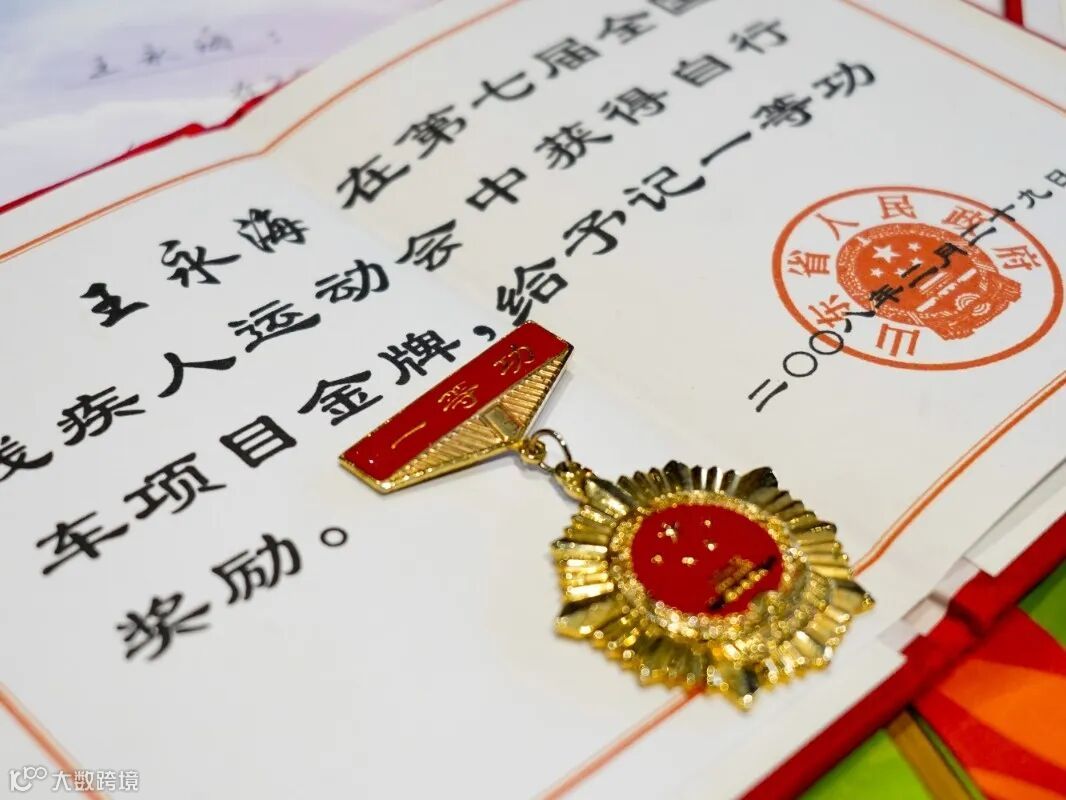 王永海：
王永海在第七届全国
残疾人运动会中获得自行
车项目金牌，给予记一等功
奖励。
山东省人民政府
二〇〇八年二月二十九日
一等功
大数跨境